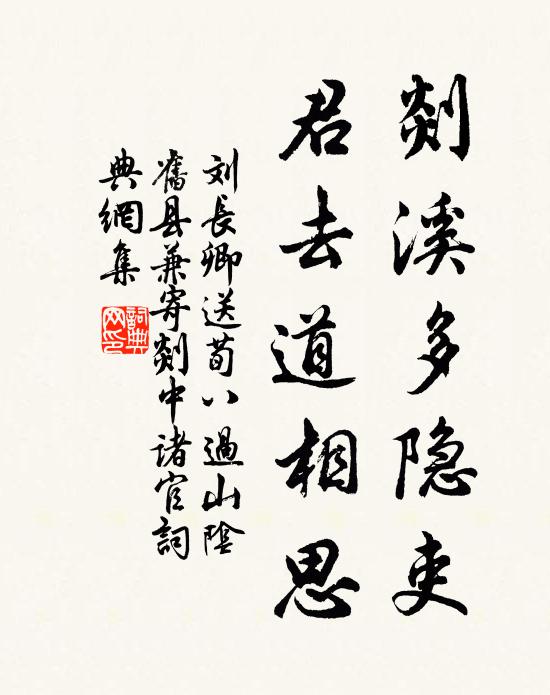 剡溪多隐吏
君去道相思
刘長卿送荀八過山陰
舊县兼寄剡中诸官詞
典網集
詞典网印